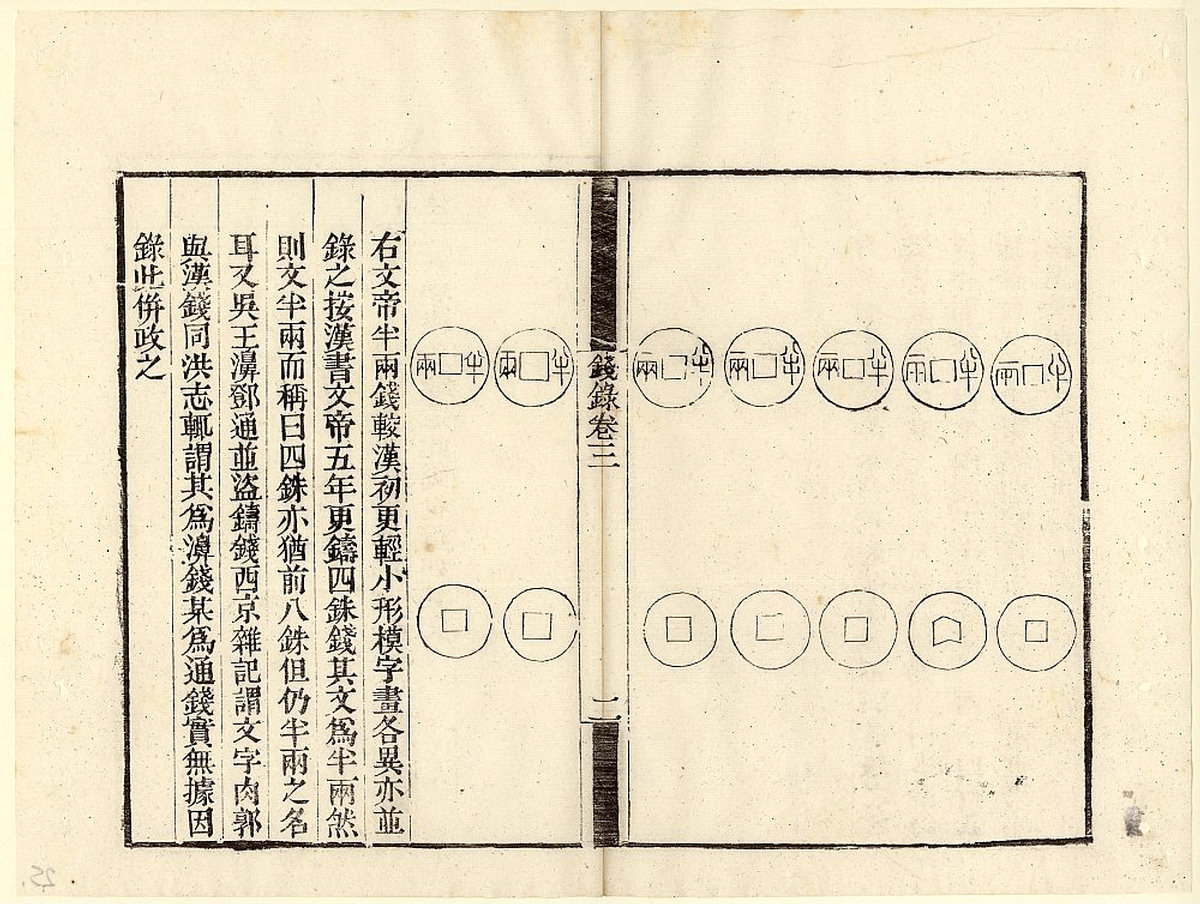 半兩
半兩
半兩
半兩
半兩
錢錄卷三
二
半兩
半兩
右文帝半兩錢較漢初更輕小形模字畫各異亦並
錄之按漢書文帝五年更鑄四銖錢其文爲半兩然
則文半兩而稱曰四銖亦猶前八銖但仍半兩之名
耳又吳王濞鄧通並盜鑄錢西京雜記謂文字肉郭
與漢錢同洪志輒謂其爲濞錢某爲通錢實無據因
錄此併政之
25.